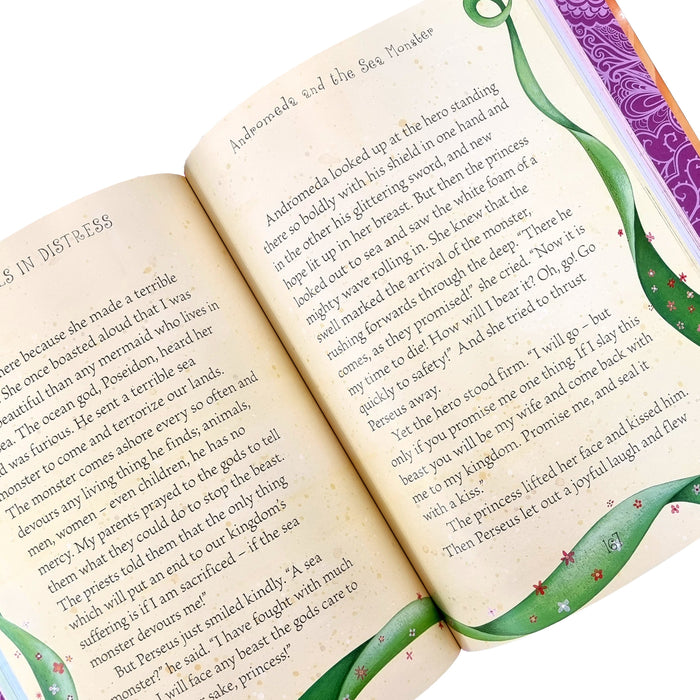 LS IN DISTRESS
here because she made a terrible
She once boasted aloud that I was
beautiful than any mermaid who lives in
sea. The ocean god, Poseidon, heard her
d was furious. He sent a terrible sea
monster to come and terrorize our lands.
The monster comes ashore every so often and
devours any living thing he finds; animals,
men, women – even children, he has no
mercy. My parents prayed to the gods to tell
them what they could do to stop the beast.
The priests told them that the only thing
which will put an end to our kingdom's
suffering is if I am sacrificed – if the sea
monster devours me!"
But Perseus just smiled kindly. "A sea
monster?" he said. "I have fought with much
I will face any beast the gods care to
sake, princess!"
Andromeda and the Sea Monster
Andromeda looked up at the hero standing
there so boldly with his shield in one hand and
in the other his glittering sword, and new
hope lit up in her breast. But then the princess
looked out to sea and saw the white foam of a
mighty wave rolling in. She knew that the
swell marked the arrival of the monster,
rushing forwards through the deep. "There he
comes, as they promised!" she cried. "Now it is
my time to die! How will I bear it? Oh, go! Go
quickly to safety!" And she tried to thrust
Perseus away.
Yet the hero stood firm. "I will go – but
only if you promise me one thing. If I slay this
beast you will be my wife and come back with
me to my kingdom. Promise me, and seal it
with a kiss."
The princess lifted her face and kissed him.
Then Perseus let out a joyful laugh and flew
167